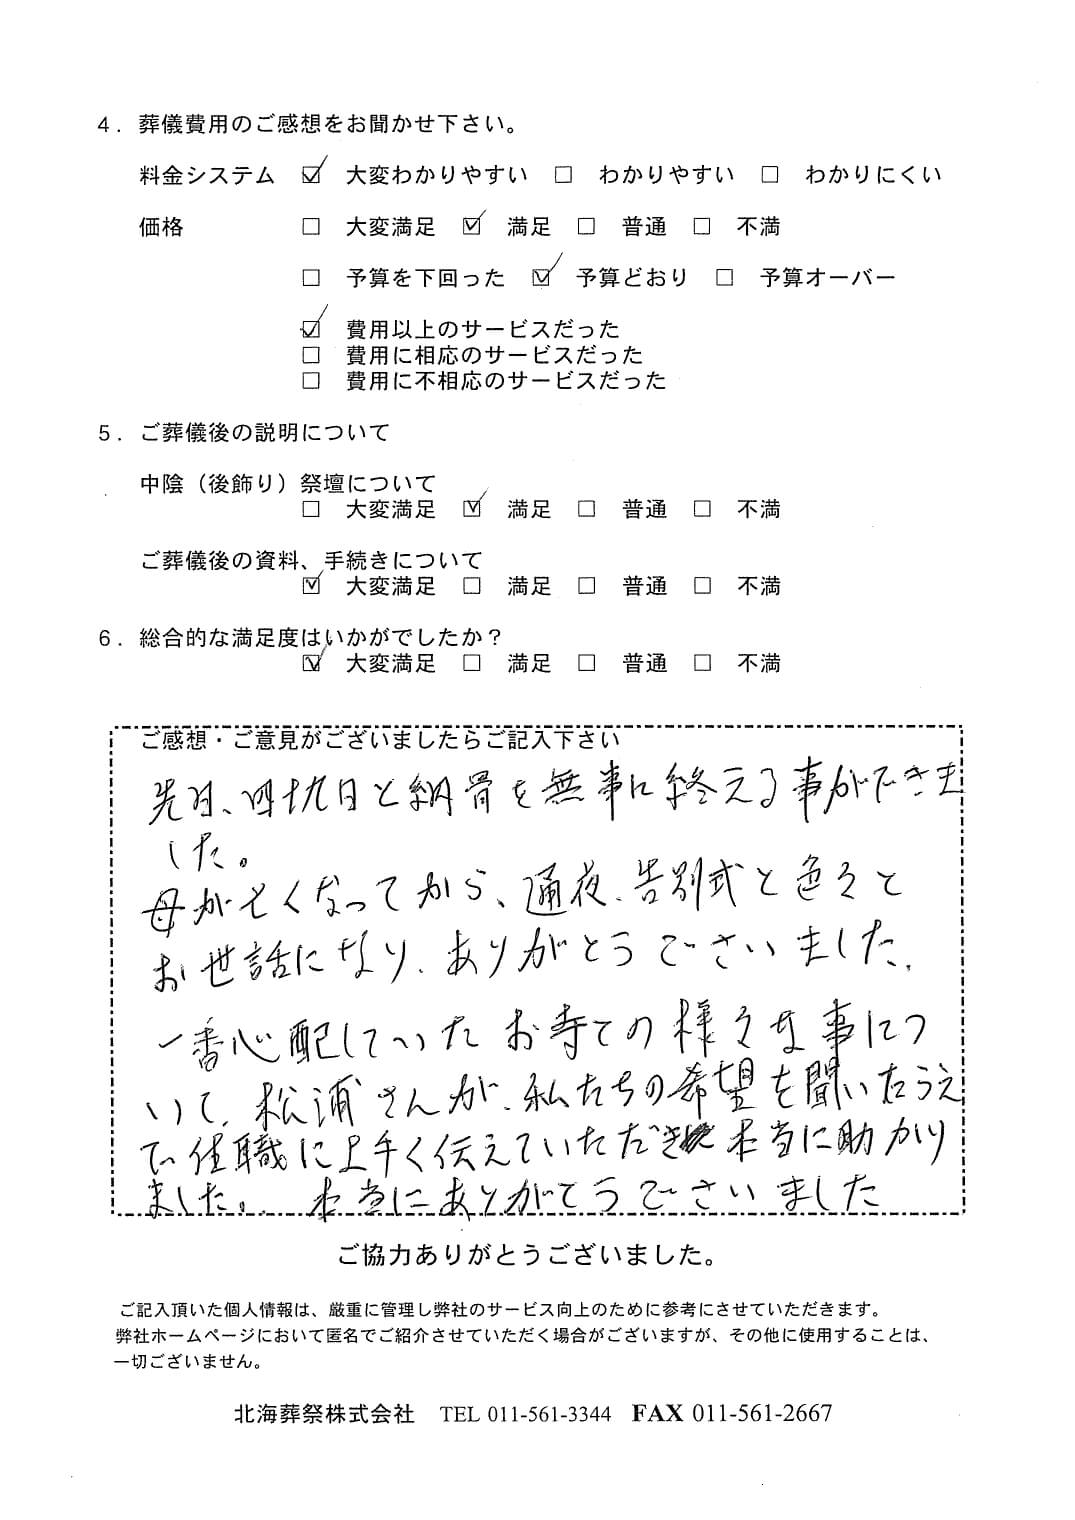 4．葬儀費用のご感想をお聞かせ下さい。
料金システム ☑ 大変わかりやすい □ わかりやすい □ わかりにくい
価格 □ 大変満足 ☑ 満足 □ 普通 □ 不満
□ 予算を下回った ☑ 予算どおり □ 予算オーバー
☑ 費用以上のサービスだった
□ 費用に相応のサービスだった
□ 費用に不相応のサービスだった
5．ご葬儀後の説明について
中陰（後飾り）祭壇について
□ 大変満足 ☑ 満足 □ 普通 □ 不満
ご葬儀後の資料、手続きについて
☑ 大変満足 □ 満足 □ 普通 □ 不満
6．総合的な満足度はいかがでしたか？
☑ 大変満足 □ 満足 □ 普通 □ 不満
ご感想・ご意見がございましたらご記入下さい
先日、四十九日と納骨を無事に終える事ができま
した。
母が亡くなってから、通夜、告別式と色々と
お世話になり、ありがとうございました。
一番心配していたお寺での様々な事につ
いて、松浦さんが、私たちの希望を聞いたうえ
で住職に上手く伝えていただき本当に助かり
ました。 本当にありがとうございました
ご協力ありがとうございました。
ご記入頂いた個人情報は、厳重に管理し弊社のサービス向上のために参考にさせていただきます。
弊社ホームページにおいて匿名でご紹介させていただく場合がございますが、その他に使用することは、
一切ございません。
北海葬祭株式会社 TEL 011-561-3344 FAX 011-561-2667